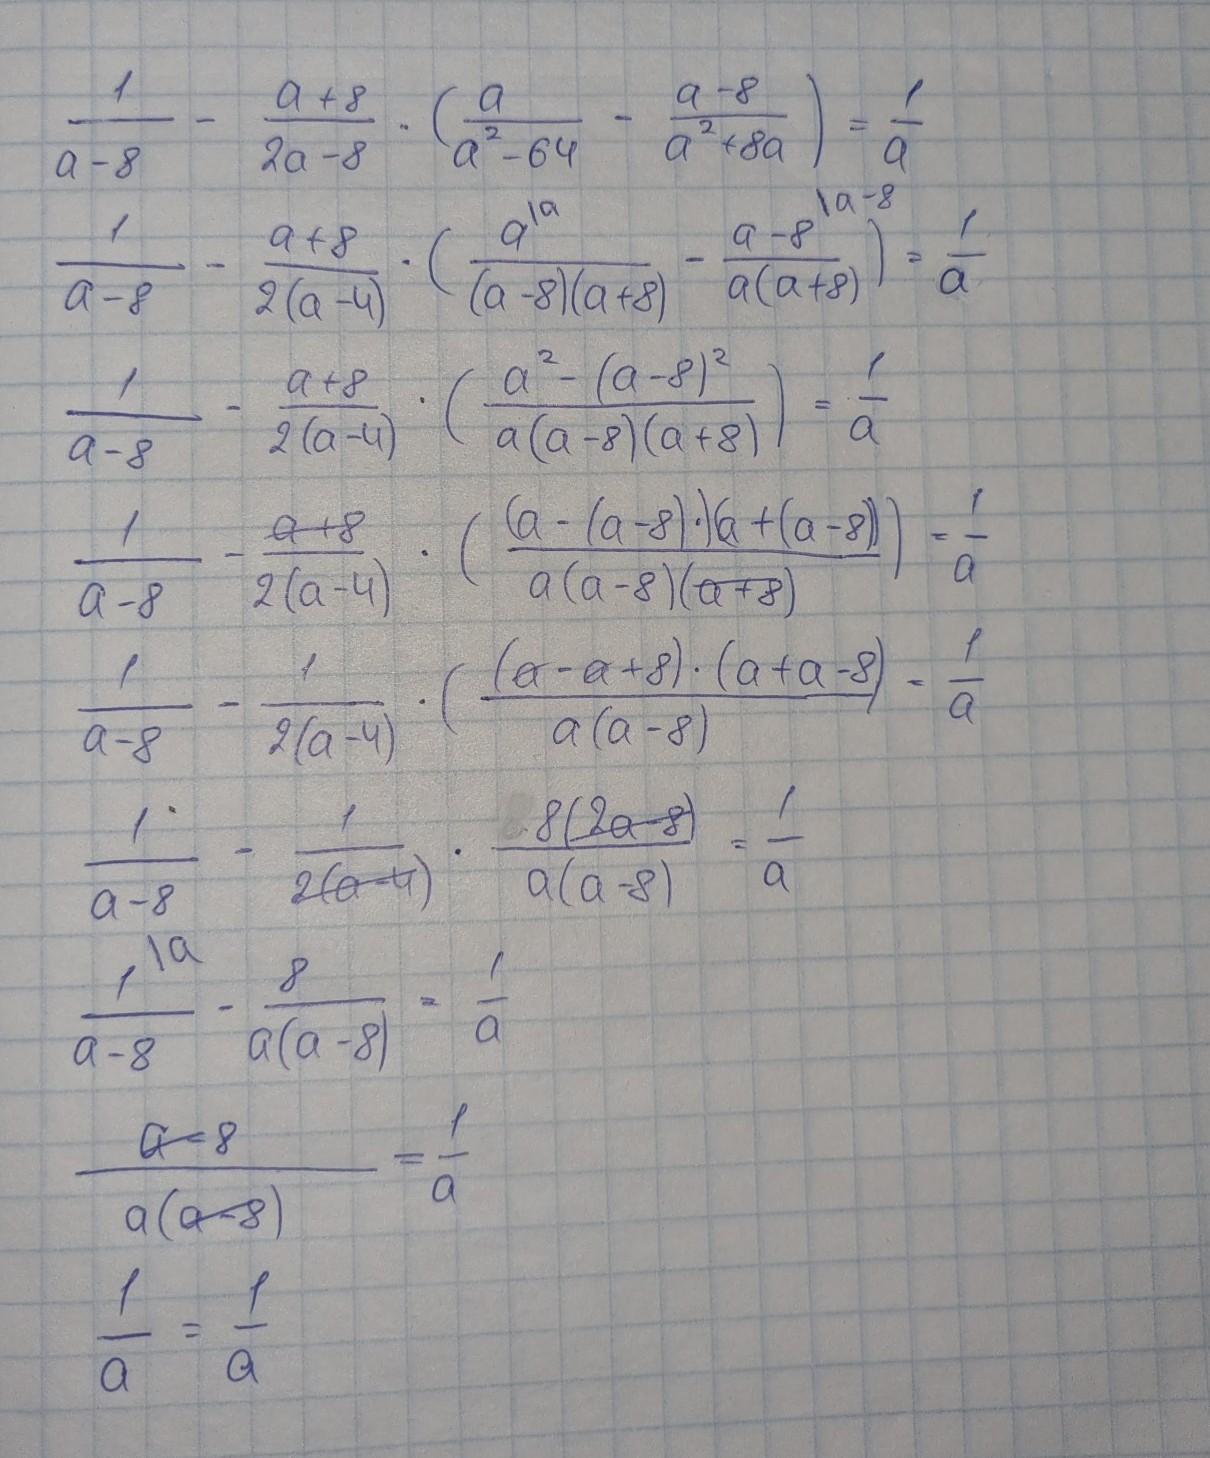 1/(a-8) - (a+8)/(2a-8) · (a/(a²-64) - (a-8)/(a²+8a)) = 1/a
1/(a-8) - (a+8)/(2(a-4)) · (a\a/((a-8)(a+8)) - (a-8)\a-8/(a(a+8))) = 1/a
1/(a-8) - (a+8)/(2(a-4)) · ((a²-(a-8)²)/(a(a-8)(a+8))) = 1/a
1/(a-8) - (a+8)/(2(a-4)) · ((a-(a-8)·)(a+(a-8))/(a(a-8)(a+8))) = 1/a
1/(a-8) - 1/(2(a-4)) · ((a-a+8)·(a+a-8)/(a(a-8)) = 1/a
1/(a-8) - 1/(2(a-4)) · 8(2a-8)/(a(a-8)) = 1/a
1\a/(a-8) - 8/(a(a-8)) = 1/a
(a-8)/(a(a-8)) = 1/a
1/a = 1/a